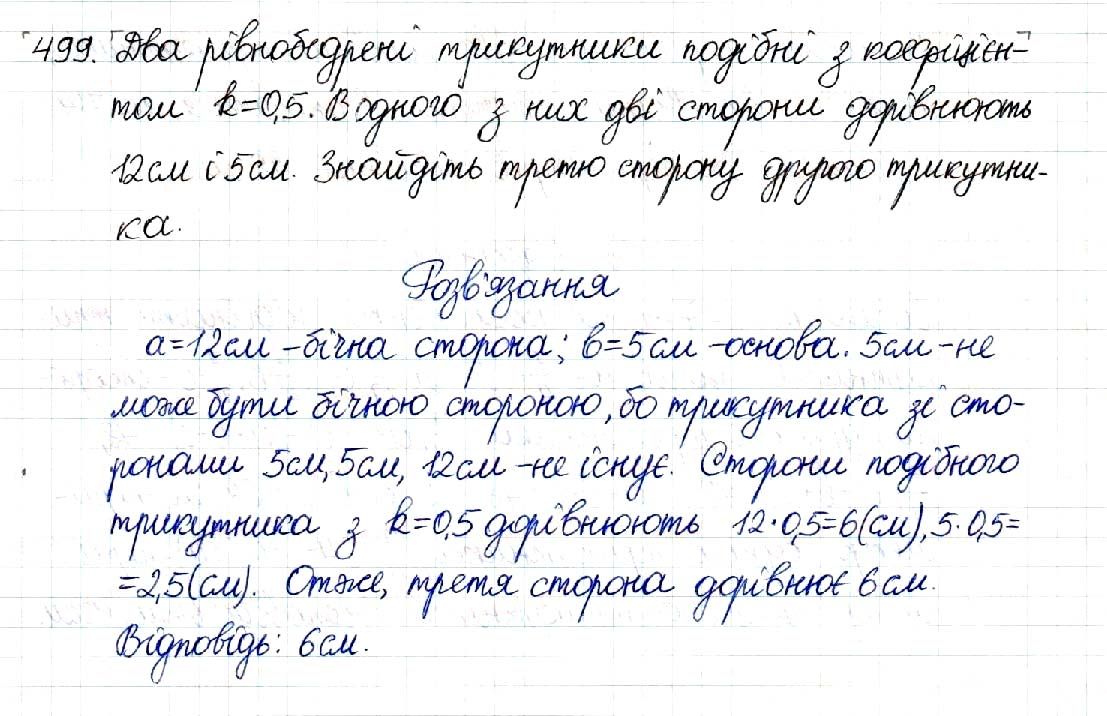 499. Два рівнобедрені трикутники подібні з коефіцієн-
том k=0,5. В одного з них дві сторони дорівнюють
12см і 5см. Знайдіть третю сторону другого трикутни-
ка.
Розв'язання
a=12см -бічна сторона; b=5см -основа. 5см -не
може бути бічною стороною, бо трикутника зі сто-
ронами 5см, 5см, 12см -не існує. Сторони подібного
трикутника з k=0,5 дорівнюють 12·0,5=6(см), 5·0,5=
=2,5(см). Отже, третя сторона дорівнює 6см.
Відповідь: 6см.